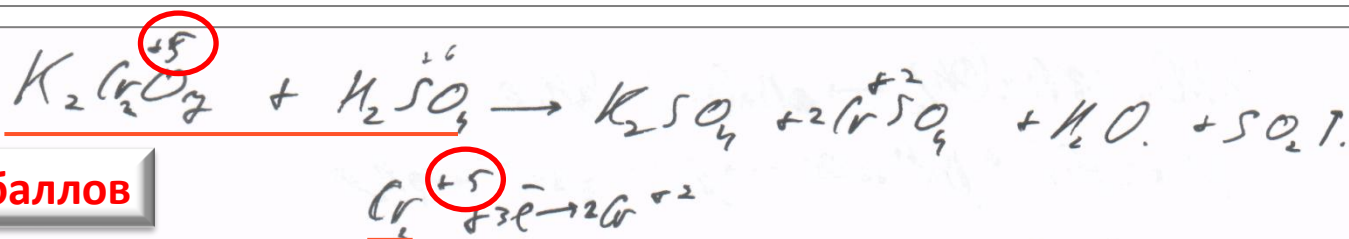 +5 +6 +2
K₂Cr₂O₇ + H₂SO₄ → K₂SO₄ + 2CrSO₄ + H₂O. + SO₂↑.
баллов
Cr₂⁺⁵ +3e̅ → 2Cr⁺²